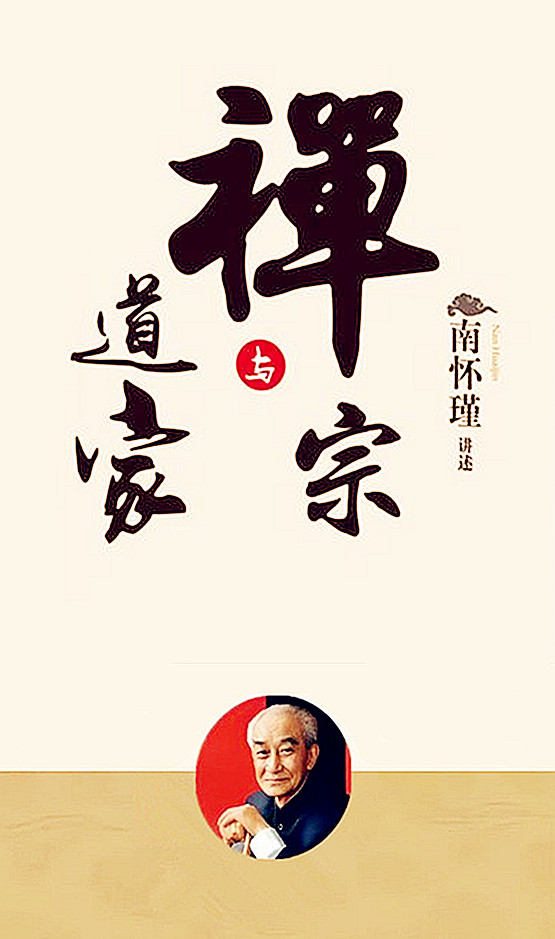 禪宗
与
道家
南怀瑾
Nan Huaijin
讲述